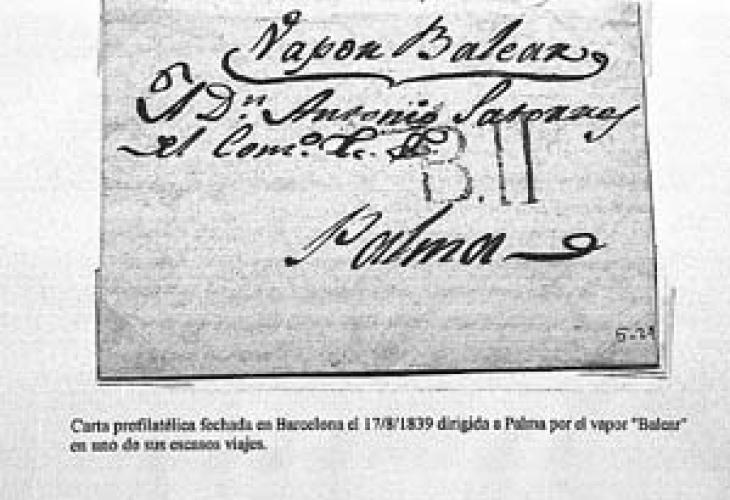 Vapor Balear
A Dn. Antonio Satorras
del Comº
B.11
Palma
Carta prefilatélica fechada en Barcelona el 17/8/1839 dirigida a Palma por el vapor "Balear"
en uno de sus escasos viajes.